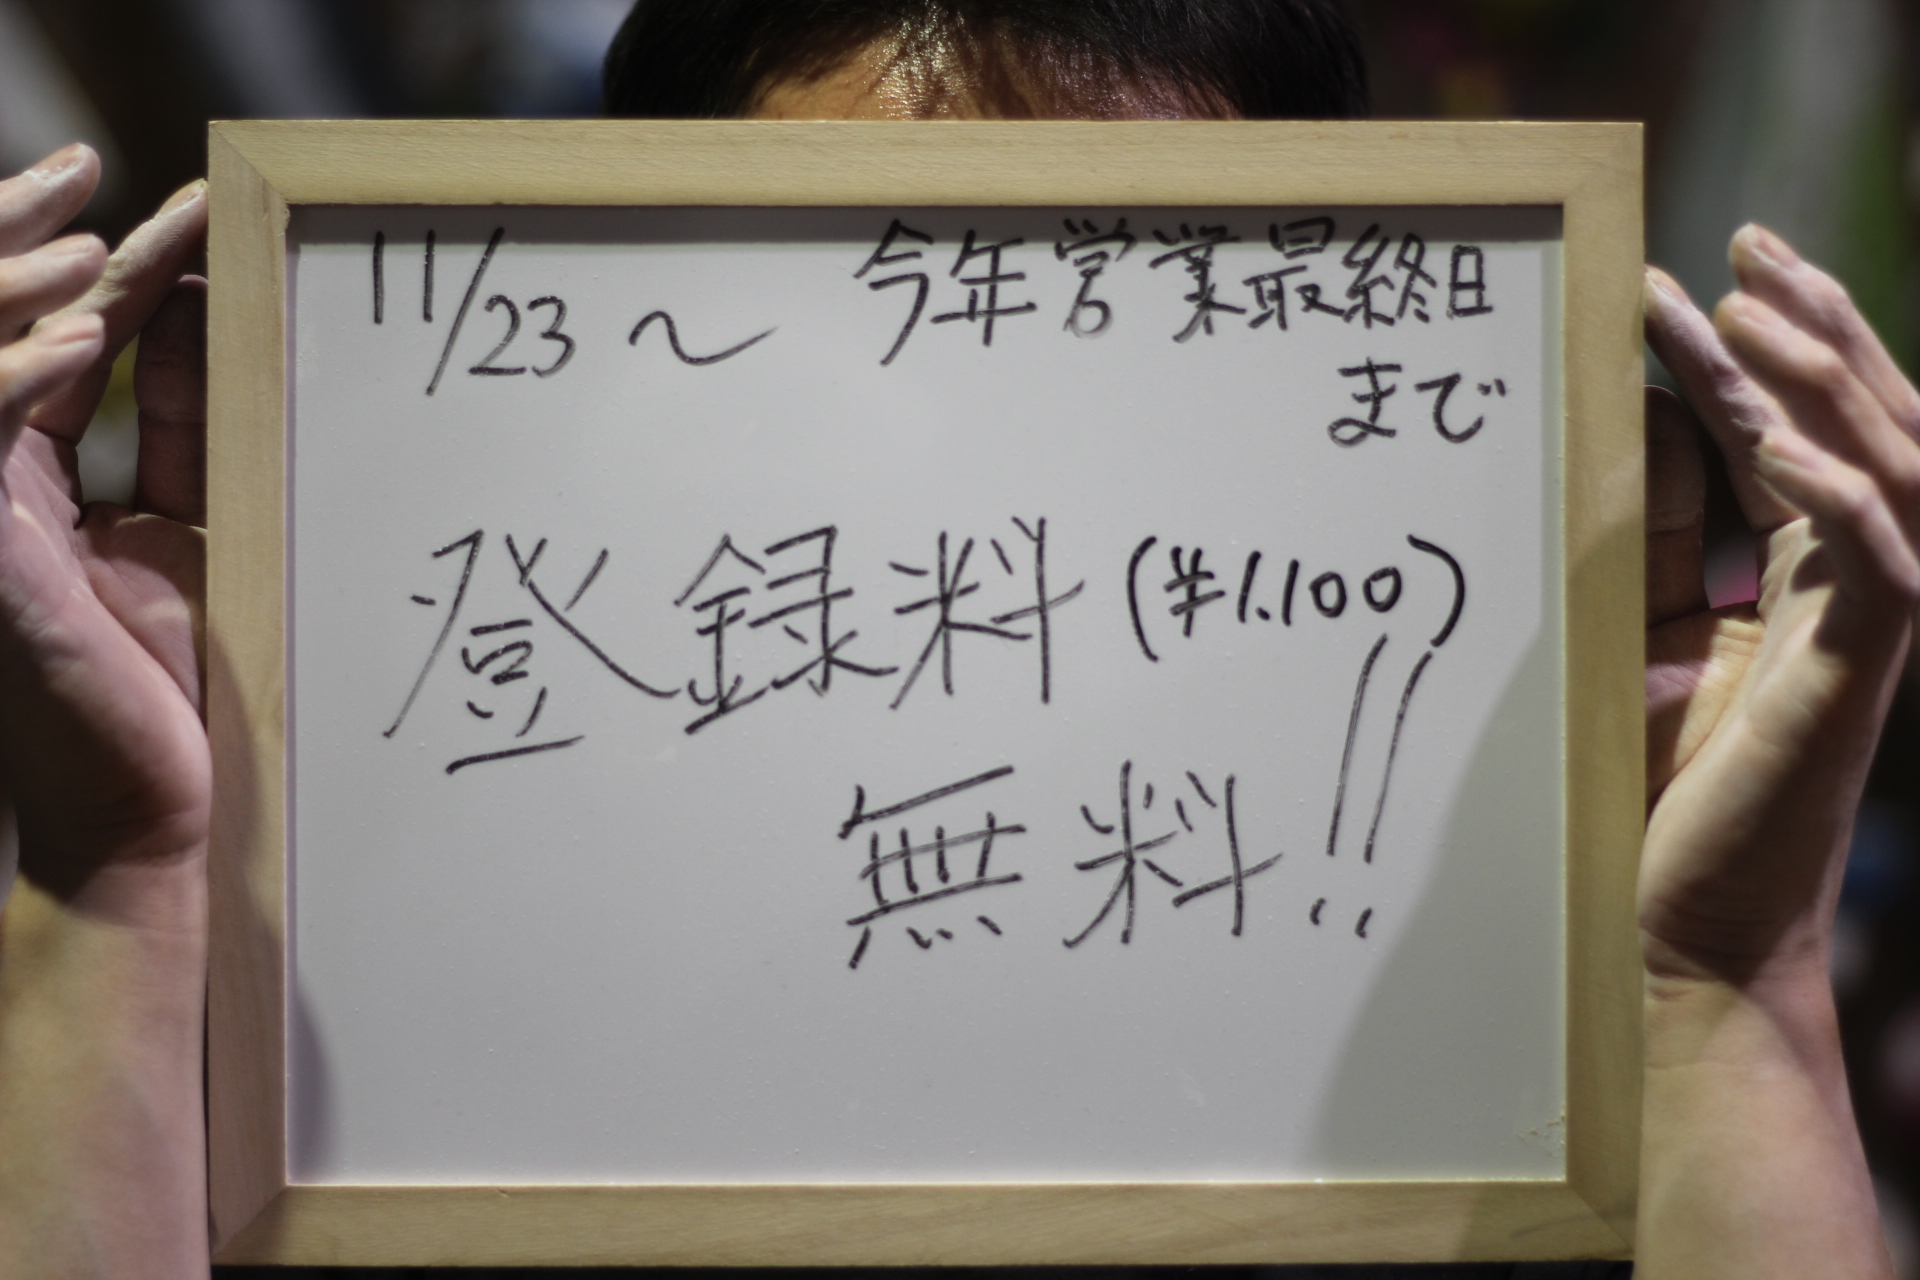 11/23 〜 今年営業最終日
まで
登録料 (¥1.100)
無料!!